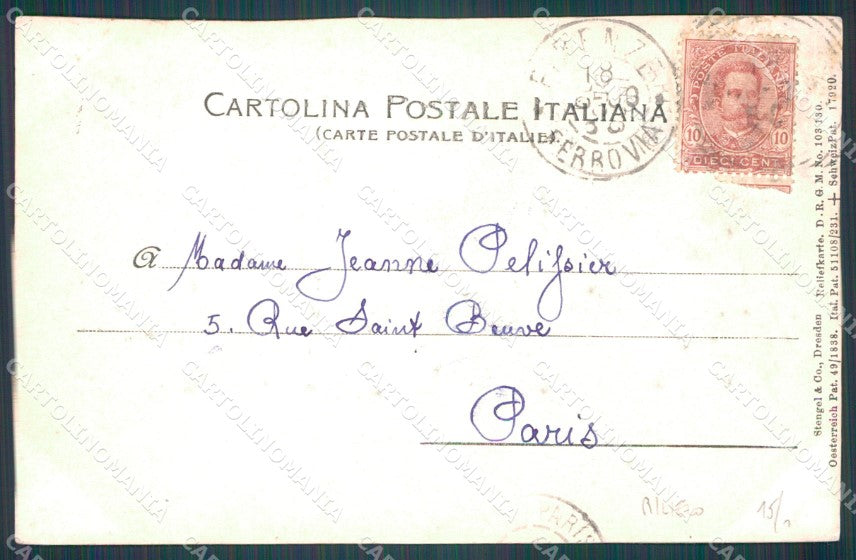 CARTOLINA POSTALE ITALIANA
(CARTE POSTALE D'ITALIE)
FIRENZE
18
FERROVIA
POSTE ITALIANE
10 10
DIECI CENT.
a Madame Jeanne Pelissier
5. Rue Saint Beuve
Paris
Stengel & Co., Dresden Reliefkarte. D. R. G. M. No. 103130.
Oesterreich Pat. 49/1838. Ital. Pat. 51108/231. + Schweiz Pat. 17920.
PARIS
RILIEVO
15/.
CARTOLINOMANIA